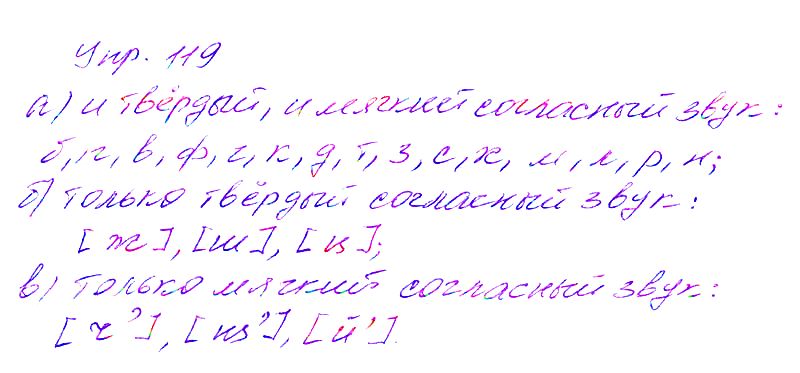 Упр. 119
а) и твёрдый, и мягкий согласный звук:
б, п, в, ф, г, к, д, т, з, с, х, м, л, р, н;
б) только твёрдый согласный звук:
[ж], [ш], [ц];
в) только мягкий согласный звук:
[ч’], [щ’], [й’].